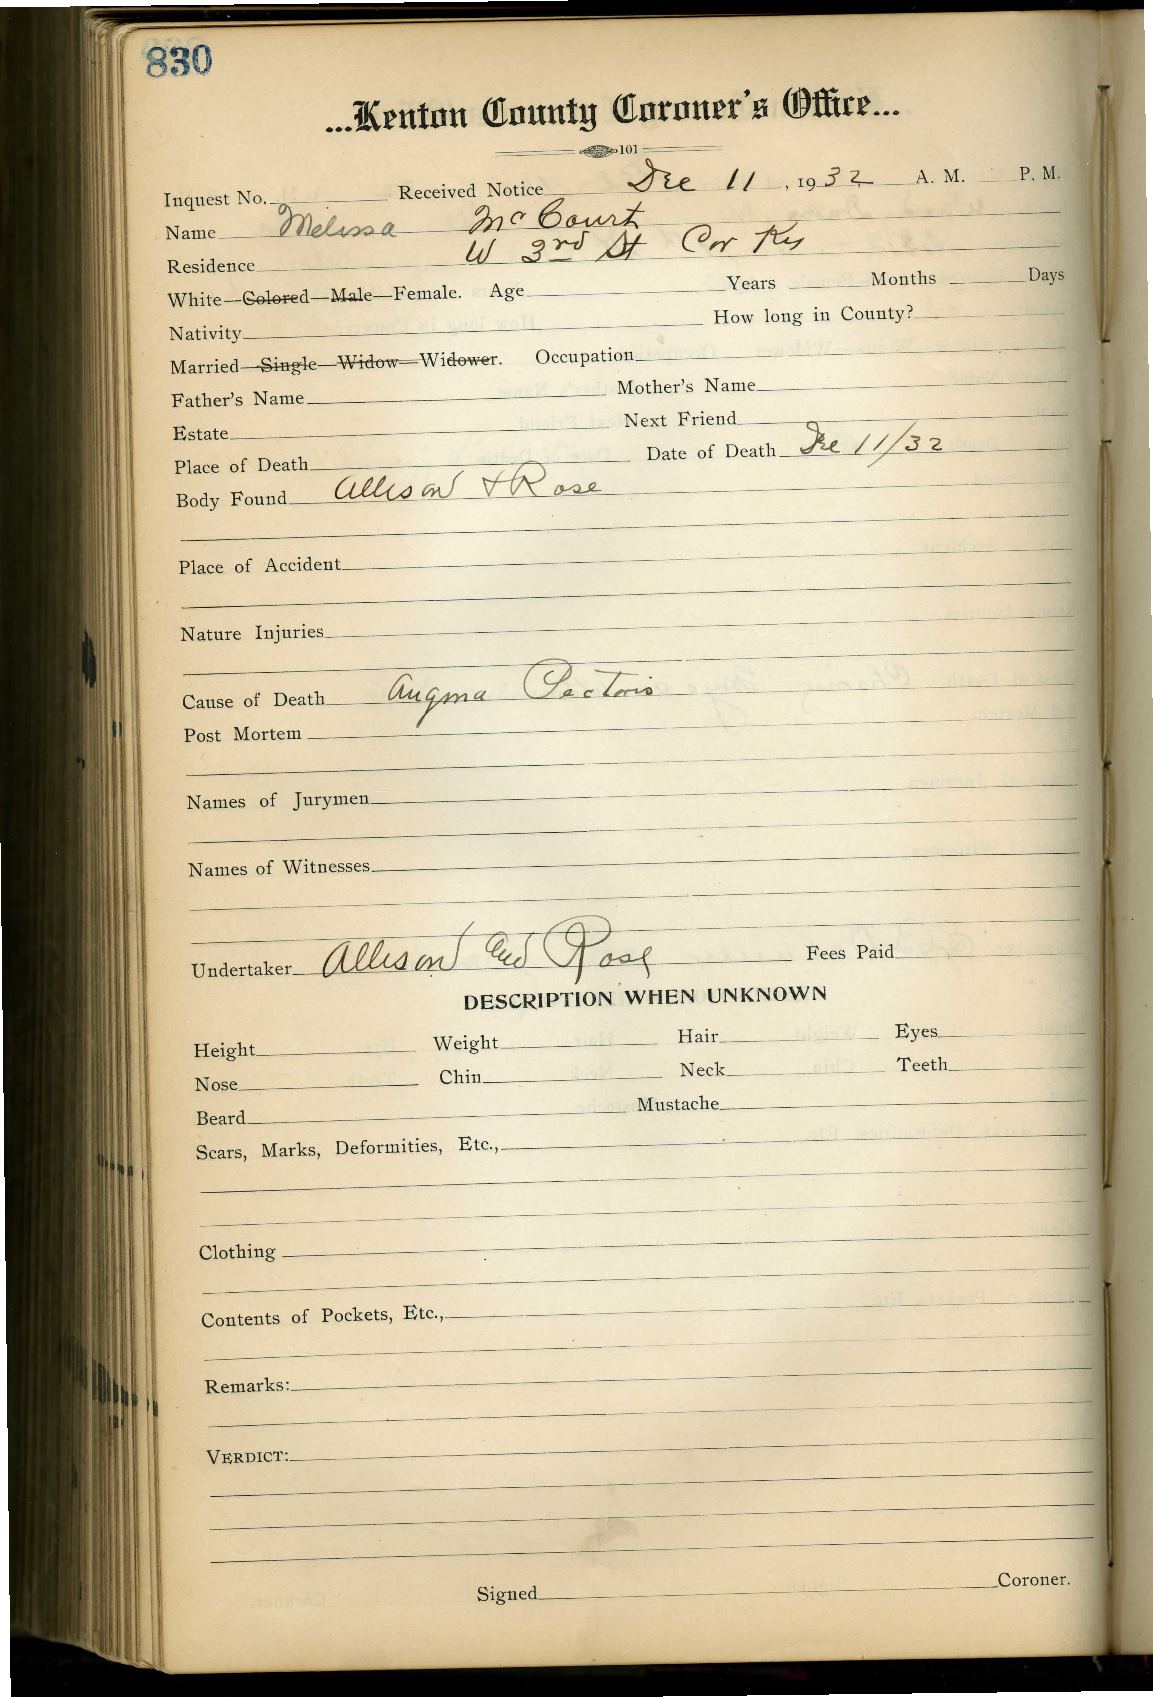 830
...Kenton County Coroner's Office...
101
Inquest No. Received Notice Dec 11, 1932 A. M. P. M.
Name Melissa McCourt
Residence W 3rd St Cov Ky
White—Colored—Male—Female. Age Years Months Days
Nativity How long in County?
Married—Single—Widow—Widower. Occupation
Father's Name Mother's Name
Estate Next Friend
Place of Death Date of Death Dec 11/32
Body Found Allison & Rose
Place of Accident
Nature Injuries
Cause of Death Angina Pectoris
Post Mortem
Names of Jurymen
Names of Witnesses
Undertaker Allison and Rose Fees Paid
DESCRIPTION WHEN UNKNOWN
Height Weight Hair Eyes
Nose Chin Neck Teeth
Beard Mustache
Scars, Marks, Deformities, Etc.,
Clothing
Contents of Pockets, Etc.,
Remarks:
VERDICT:
Signed Coroner.